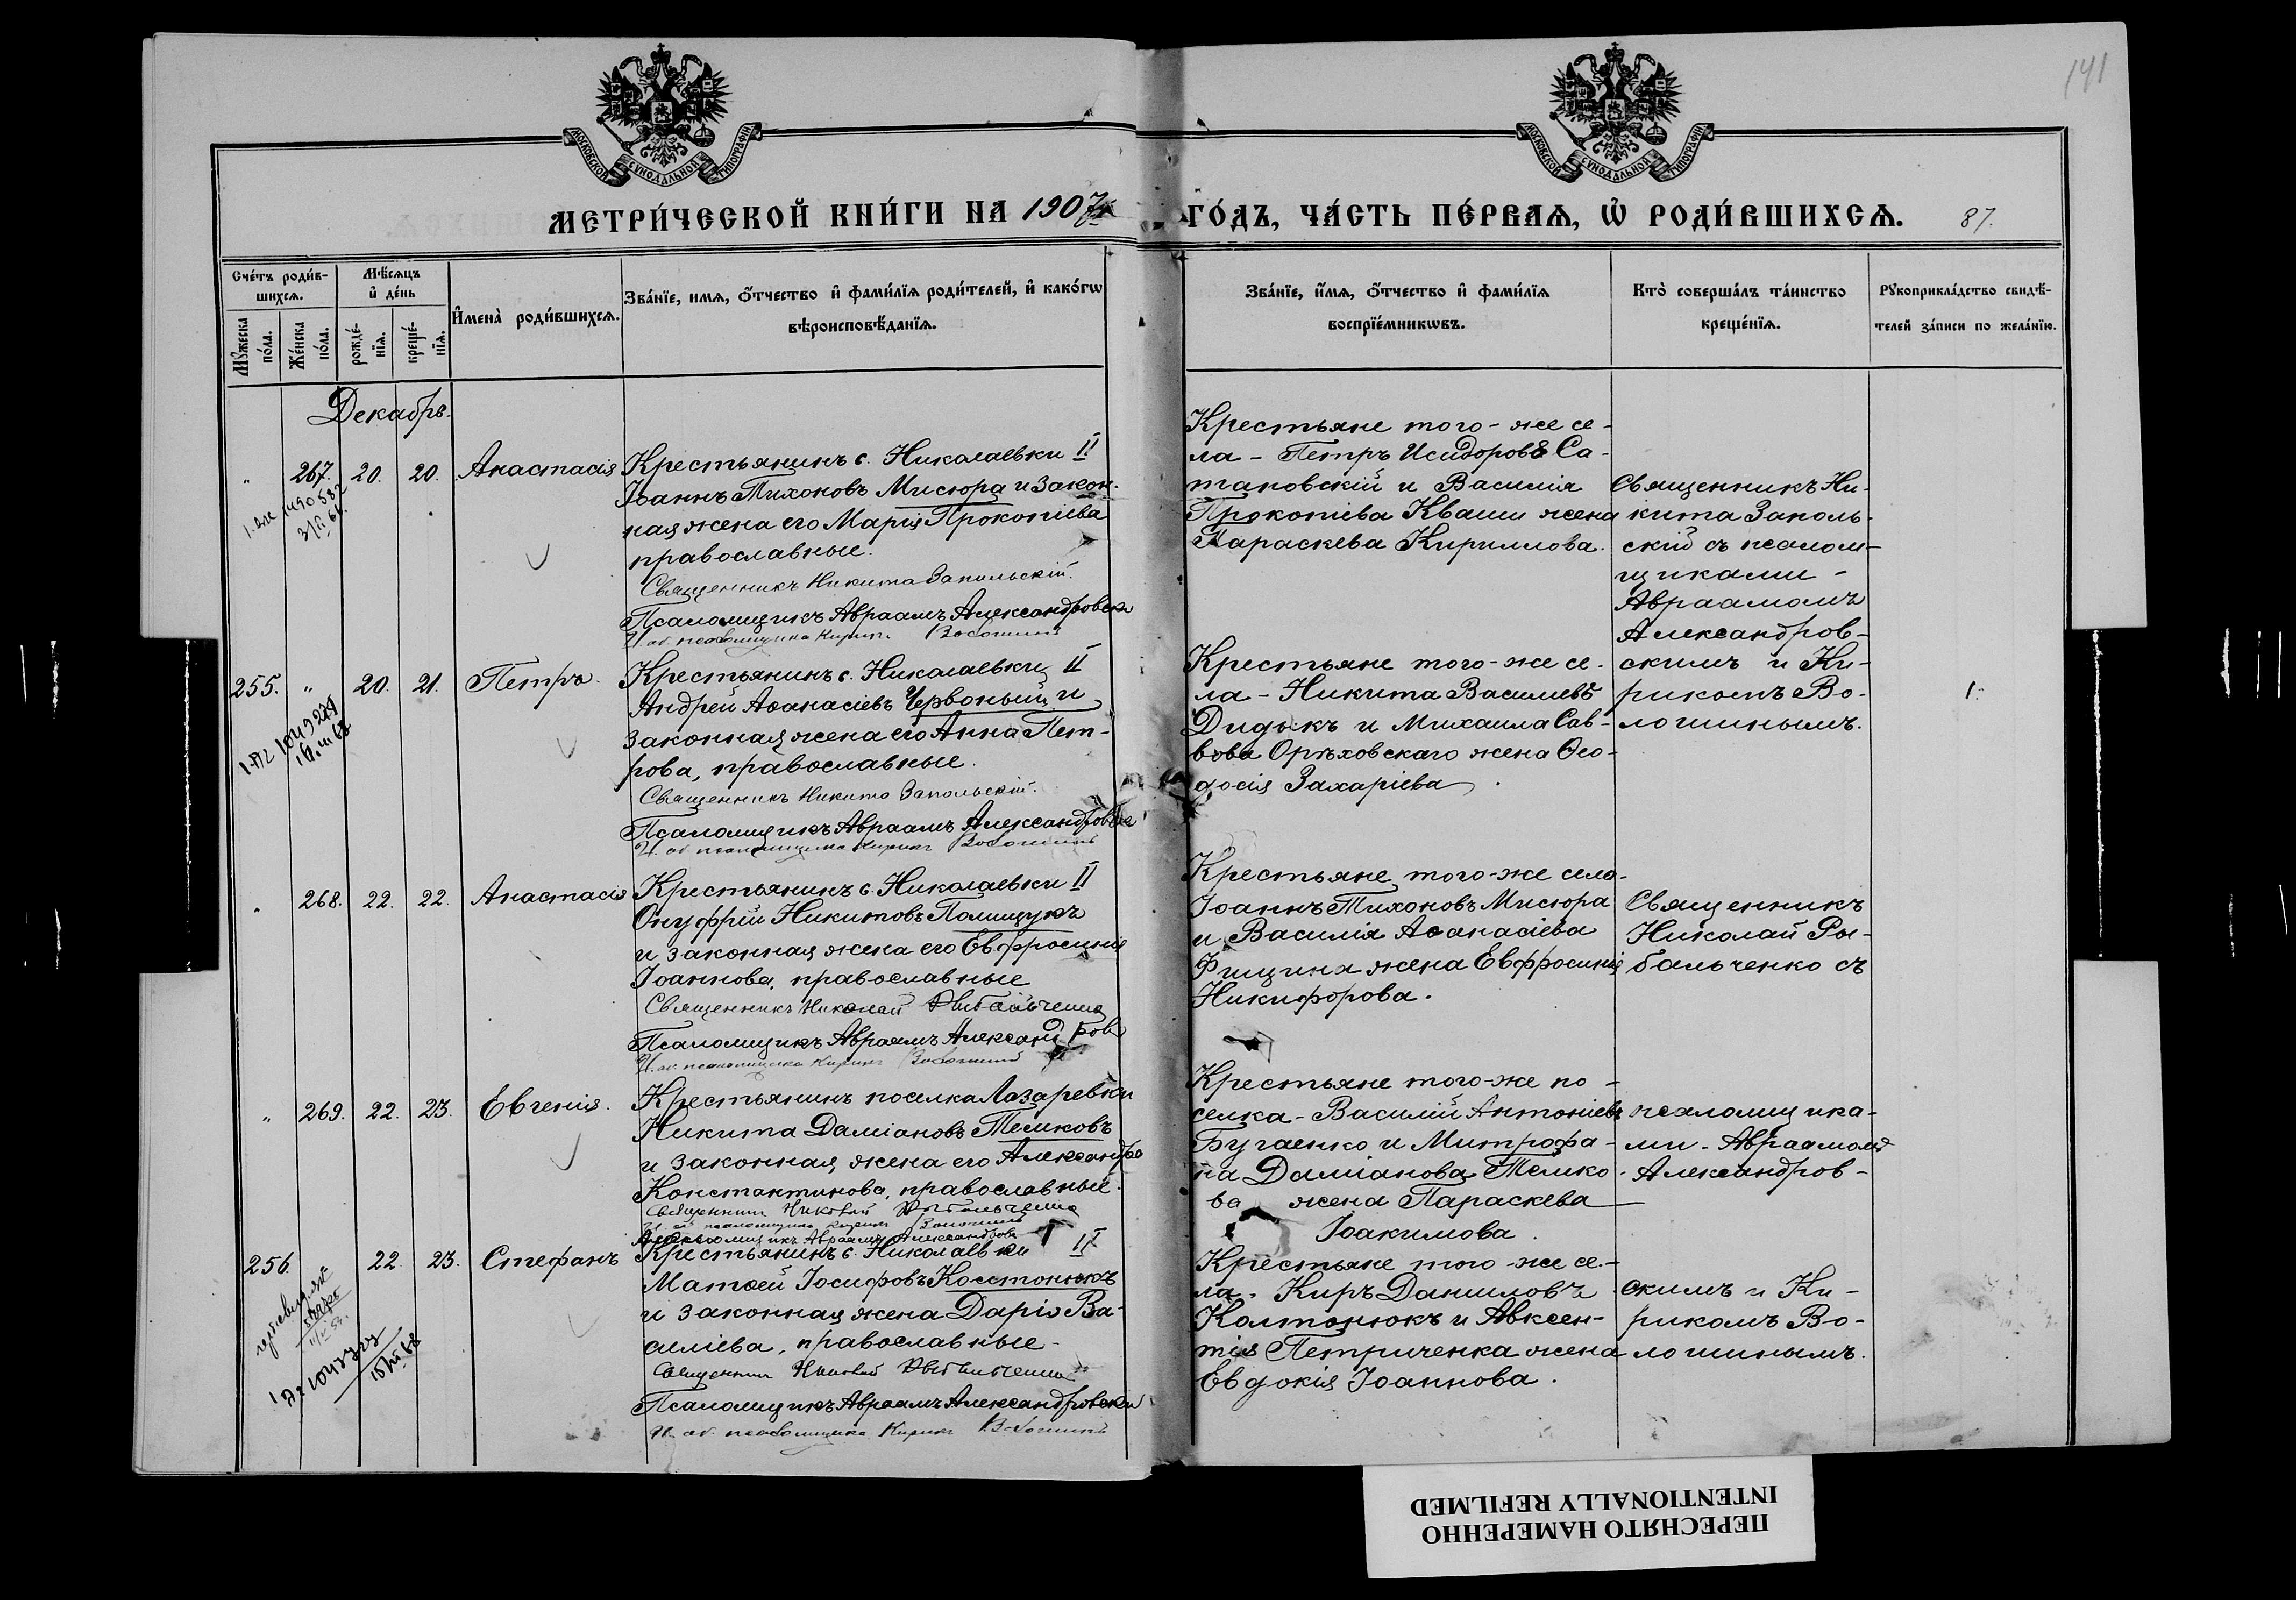 141
МОСКОВСКОЙ СѴНОДАЛЬНОЙ ТИПОГРАФІИ
МОСКОВСКОЙ СѴНОДАЛЬНОЙ ТИПОГРАФІИ
МЕТРИ́ЧЕСКОЙ КНИ́ГИ НА 1907
ГО́ДЪ, ЧА́СТЬ ПЕ́РВАѦ, Ѽ РОДИ́ВШИХСѦ. 87.
Сче́тъ роди́в-
шихсѧ.
Мꙋ́жеска по́ла.
Же́нска по́ла.
Мѣ́сѧцъ
и҆ де́нь
рожде́-нїѧ.
креще́-нїѧ.
И҆мена̀ роди́вшихсѧ.
Зва́нїе, имѧ, ѻ҆́тчество и҆ фами́лїѧ роди́телей, и҆ како́гѡ
вѣроисповѣ́данїѧ.
Зва́нїе, и҆́мѧ, ѻ҆́тчество и҆ фами́лїѧ
воспрїе́мникѡвъ.
Кто̀ соверша́лъ та́инство
креще́нїѧ.
Рꙋкоприкла́дство свидѣ́-
телей за́писи по жела́нїю.
Декабрь.
" 267. 20. 20. Анастасія
Крестьянинъ с. Николаевки II
Іоаннъ Тихоновъ Мисюра и закон-
ная жена его Марія Прокопіева
православные.
Священникъ Никита Запольскій.
Псаломщикъ Авраамъ Александровск
И. об. псаломщика Кирикъ Волошинъ
Крестьяне того-же се-
ла - Петръ Исидоровъ Са-
тановскій и Василія
Прокопіева Кваши жена
Параскева Кириллова.
Священникъ Ни-
кита Заполь-
скій съ псалом-
щиками -
Авраамомъ
Александров-
скимъ и Ки-
рикомъ Во-
лошинымъ.
255. " 20. 21. Петръ.
Крестьянинъ с. Николаевки II
Андрей Аѳанасіевъ Червоный и
законная жена его Анна Пет-
рова, православные.
Священникъ Никита Запольскій.
Псаломщикъ Авраамъ Александровск
И. об. псаломщика Кирикъ Волошинъ
Крестьяне того-же се-
ла - Никита Василіевъ
Дидыкъ и Михаила Сав-
вова Орѣховскаго жена Ѳео-
досія Захаріева
1.
" 268. 22. 22. Анастасія
Крестьянинъ с. Николаевки II
Онуфрій Никитовъ Полищукъ
и законная жена его Евфросинія
Іоаннова, православные
Священникъ Николай Рыбальченко
Псаломщикъ Авраамъ Александров
И. об. псаломщика Кирикъ Волошинъ
Крестьяне того-же села-
Іоаннъ Тихоновъ Мисюра
и Василія Аѳанасіева
Фищина жена Евфросинія
Никифорова.
Священникъ
Николай Ры-
бальченко съ
" 269. 22. 23. Евгенія.
Крестьянинъ поселка Лазаревки
Никита Даміановъ Темковъ
и законная жена его Александра
Константинова, православные.
Священникъ Николай Рыбальченко
И. об. псаломщика Кирикъ Волошинъ
Псаломщикъ Авраамъ Александровск
Крестьяне того-же по-
селка - Василій Антоніевъ
Бугаенко и Митрофа-
на Даміанова Темко-
ва жена Параскева
Іоакимова.
псаломщика-
ми - Авраамомъ
Александров-
256. 22. 23. Стефанъ
Крестьянинъ с. Николаевки II
Матѳей Іосифовъ Костонюкъ
и законная жена Дарія Ва-
силіева, православные-
Священникъ Николай Рыбальченко
Псаломщикъ Авраамъ Александровскій
И. об. псаломщика Кирикъ Волошинъ
Крестьяне того-же се-
ла - Киръ Даниловъ
Колтонюкъ и Авксен-
тія Петриченка жена
Евдокія Іоаннова.
скимъ и Ки-
рикомъ Во-
лошинымъ.
ПЕРЕСНЯТО НАМЕРЕННО
INTENTIONALLY REFILMED